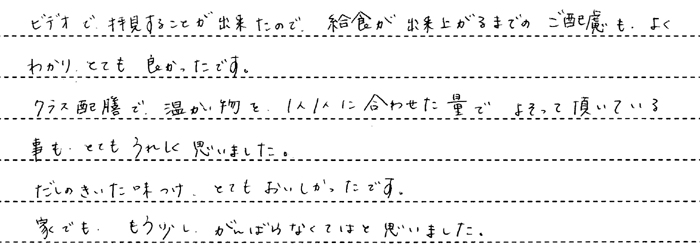 ビデオで、拝見することが出来たので、給食が出来上がるまでのご配慮も、よく
わかり、とても良かったです。
クラス配膳で、温かい物を、1人1人に合わせた量でよそって頂いている
事も、とてもうれしく思いました。
だしのきいた味つけ、とてもおいしかったです。
家でも、もう少し、がんばらなくてはと思いました。